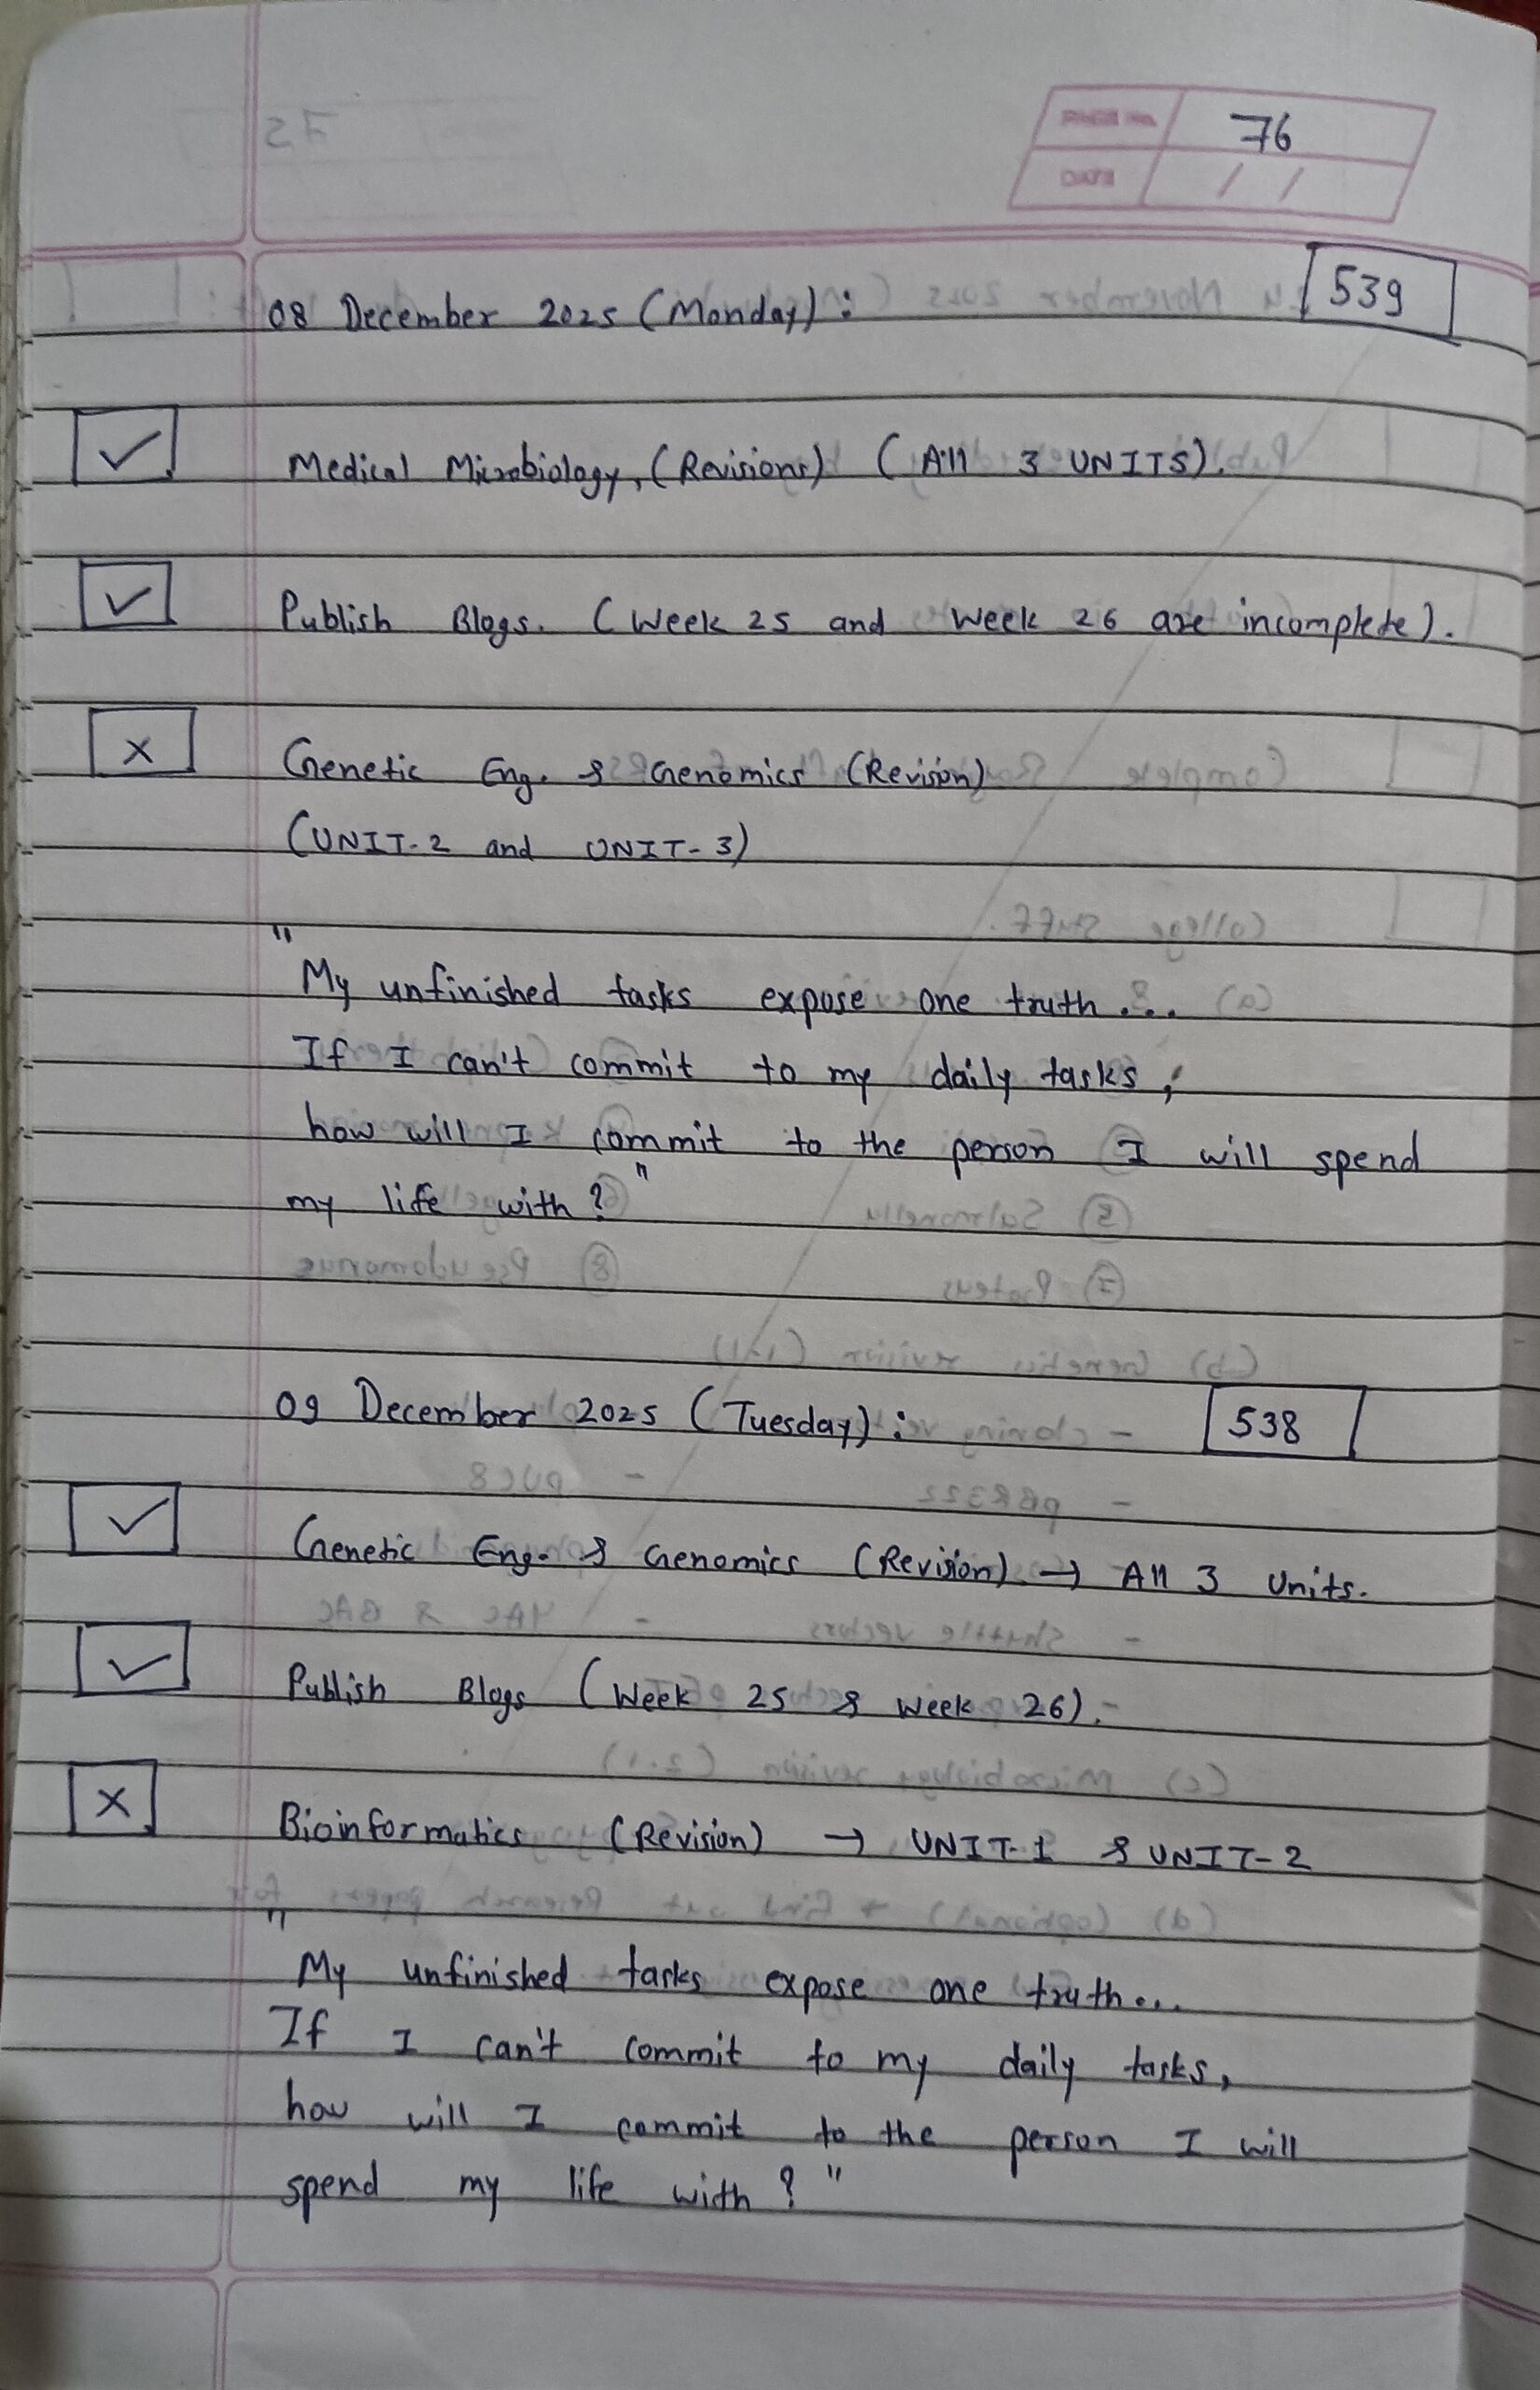 PAGE No. 76
DATE / /
08 December 2025 (Monday): 539
✓ Medical Microbiology, (Revisions) (All 3 UNITS).
✓ Publish Blogs. (Week 25 and Week 26 are incomplete).
x Genetic Eng. & Genomics (Revison)
(UNIT-2 and UNIT-3)
"
My unfinished tasks expose one truth...
If I can't commit to my daily tasks,
how will I commit to the person I will spend
my life with?"
09 December 2025 (Tuesday): 538
✓ Genetic Eng. & Genomics (Revision) → All 3 Units.
✓ Publish Blogs (Week 25 & Week 26).
x Bioinformatics (Revision) → UNIT-1 & UNIT-2
"
My unfinished tasks expose one truth...
If I can't commit to my daily tasks,
how will I commit to the person I will
spend my life with?"